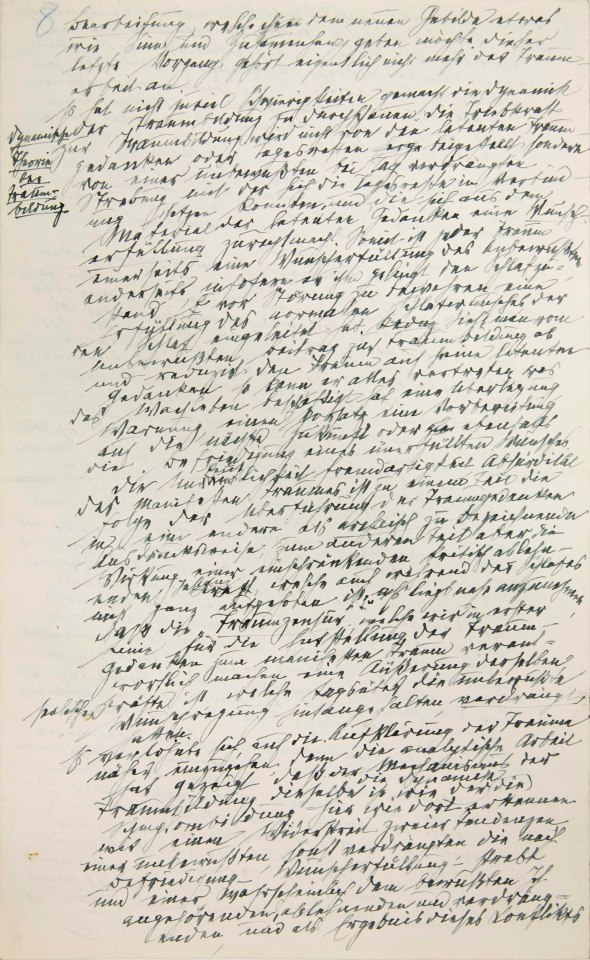 8 bearbeitung, welche ihm dem neuen Gebilde etwas
wie Sinn und Zusammenhang geben möchte dieser
letzte Vorgang gehört eigentlich nicht mehr der Traum-
arbeit an.
Es hat nicht zuviel Schwierigkeiten gemacht die Dynamik
Dynamische Theorie der Traum-bildung
der Traumbildung zu durchschauen. Die Triebkraft
zur Traumbildung wird nicht von den latenten Traum-
gedanken oder Tagesresten beigestellt, sondern
von einer unbewußten bei Tag verdrängten
Strebung mit der sich die Tagesreste in Verbind-
ung setzen konnten, und die sich aus dem
Material der latenten Gedanken eine Wunsch-
erfüllung zurechtmacht. Somit ist jeder Traum
einerseits eine Wunscherfüllung des Unbewußten
anderseits insofern es ihm gelingt den Schlafzu-
stand vor Störung zu bewahren eine
Erfüllung des normalen Schlafwunsches der
den Schlaf eingeleitet hat. Sieht man vom
unbewußten Beitrag zur Traumbildung ab
und reduzirt den Traum auf seine latenten
Gedanken so kann er alles vertreten was
das Wachleben beschäftigt hat eine Überlegung
Warnung einen Vorsatz eine Vorbereitung
auf die nächste Zukunft oder ebenfalls
die Befriedigung eines unerfüllten Wunsches
Die Unkenntlichkeit Fremdartigkeit Absurdität
des manifesten Traumes ist zu einem Teil die
Folge der Überführung der Traumgedanken
in eine andere als archaisch zu bezeichnende
Ausdrucksweise, zum anderen Teil aber die
Wirkung einer einschränkenden kritisch ableh-
nenden Instanz, welche auch während des Schlafes
nicht ganz aufgehoben ist. Es liegt nahe anzunehmen,
daß die „Traumzensur“, welche wir in erster
Linie für die Entstellung der Traum-
gedanken zum manifesten Traum verant-
wortlich machen eine Äußerung derselben
seelischen Kräfte ist, welche tagsüber die unbewußte
Wunschregung hintangehalten, verdrängt
hatten.
Es verlohnte sich auf die Aufklärung der Träume
näher einzugehen, denn die analytische Arbeit
hat gezeigt daß der Mechanismus die Dynamik der
Traumbildung dieselbe ist wie der die
Symptombildung. Hier wie dort erkennen
wir einen Widerstreit zweier Tendenzen
einer unbewußten, sonst verdrängten die nach
Befriedigung – Wunscherfüllung – strebt
und einer wahrscheinlich dem bewußten Ich
angehörenden, ablehnenden und verdräng-
enden, und als Ergebnis dieses Konflikts